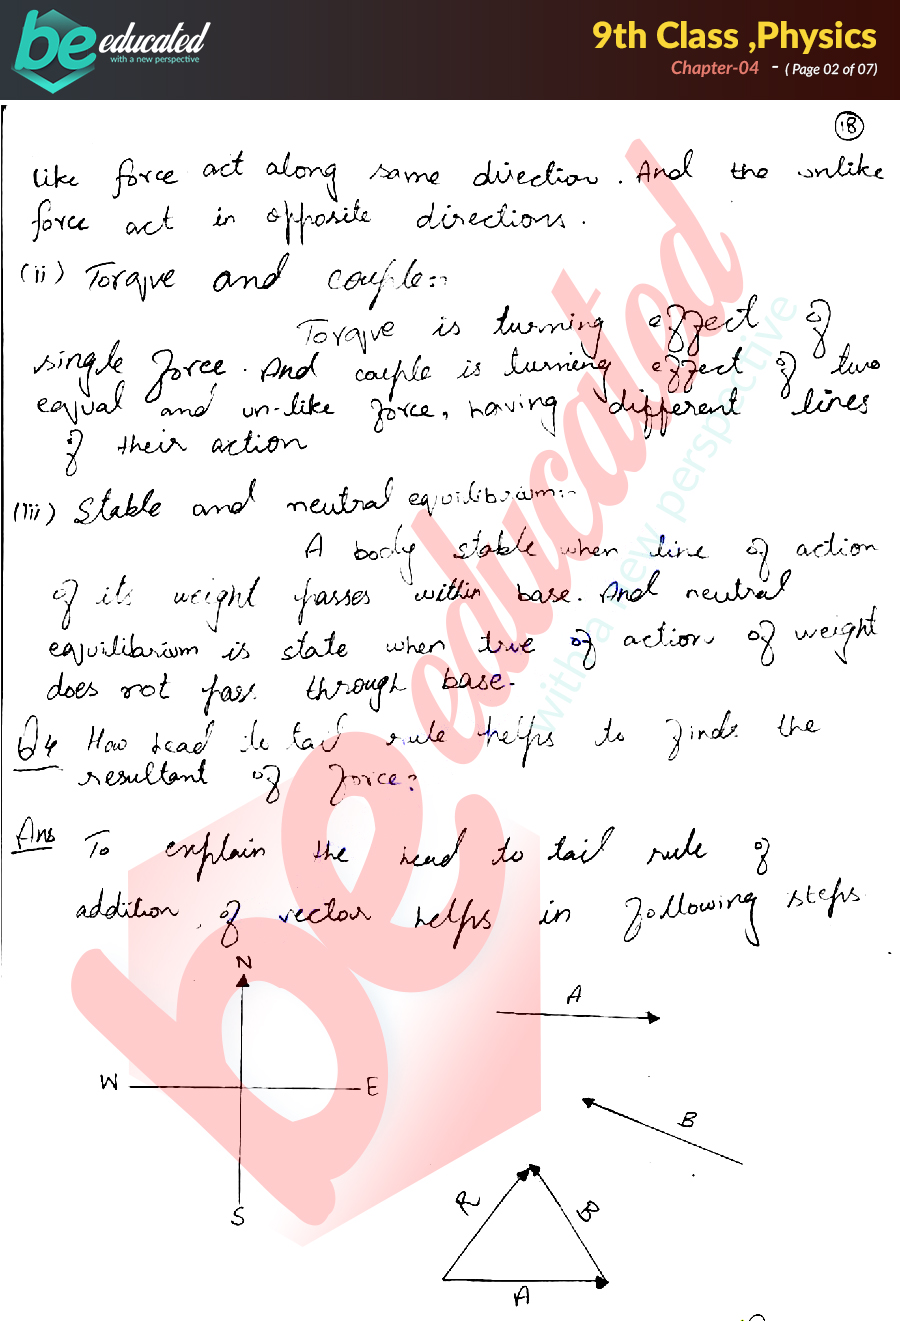 be educated
with a new perspective
9th Class ,Physics
Chapter-04 - ( Page 02 of 07)
18
like force act along same direction. And the unlike
force act in opposite directions.
(ii) Torque and couple:-
Torque is turning effect of
single force. And couple is turning effect of two
equal and un-like force, having different lines
of their action
(iii) Stable and neutral equilibrium:-
A body stable when line of action
of its weight passes within base. And neutral
equilibrium is state when true of action of weight
does not pass through base.
Q4 How head to tail rule helps to finds the
resultant of force?
Ans To explain the head to tail rule of
addition, of vector helps in following steps.
N
A
W E
B
S
R B
A
be educated
with a new perspective